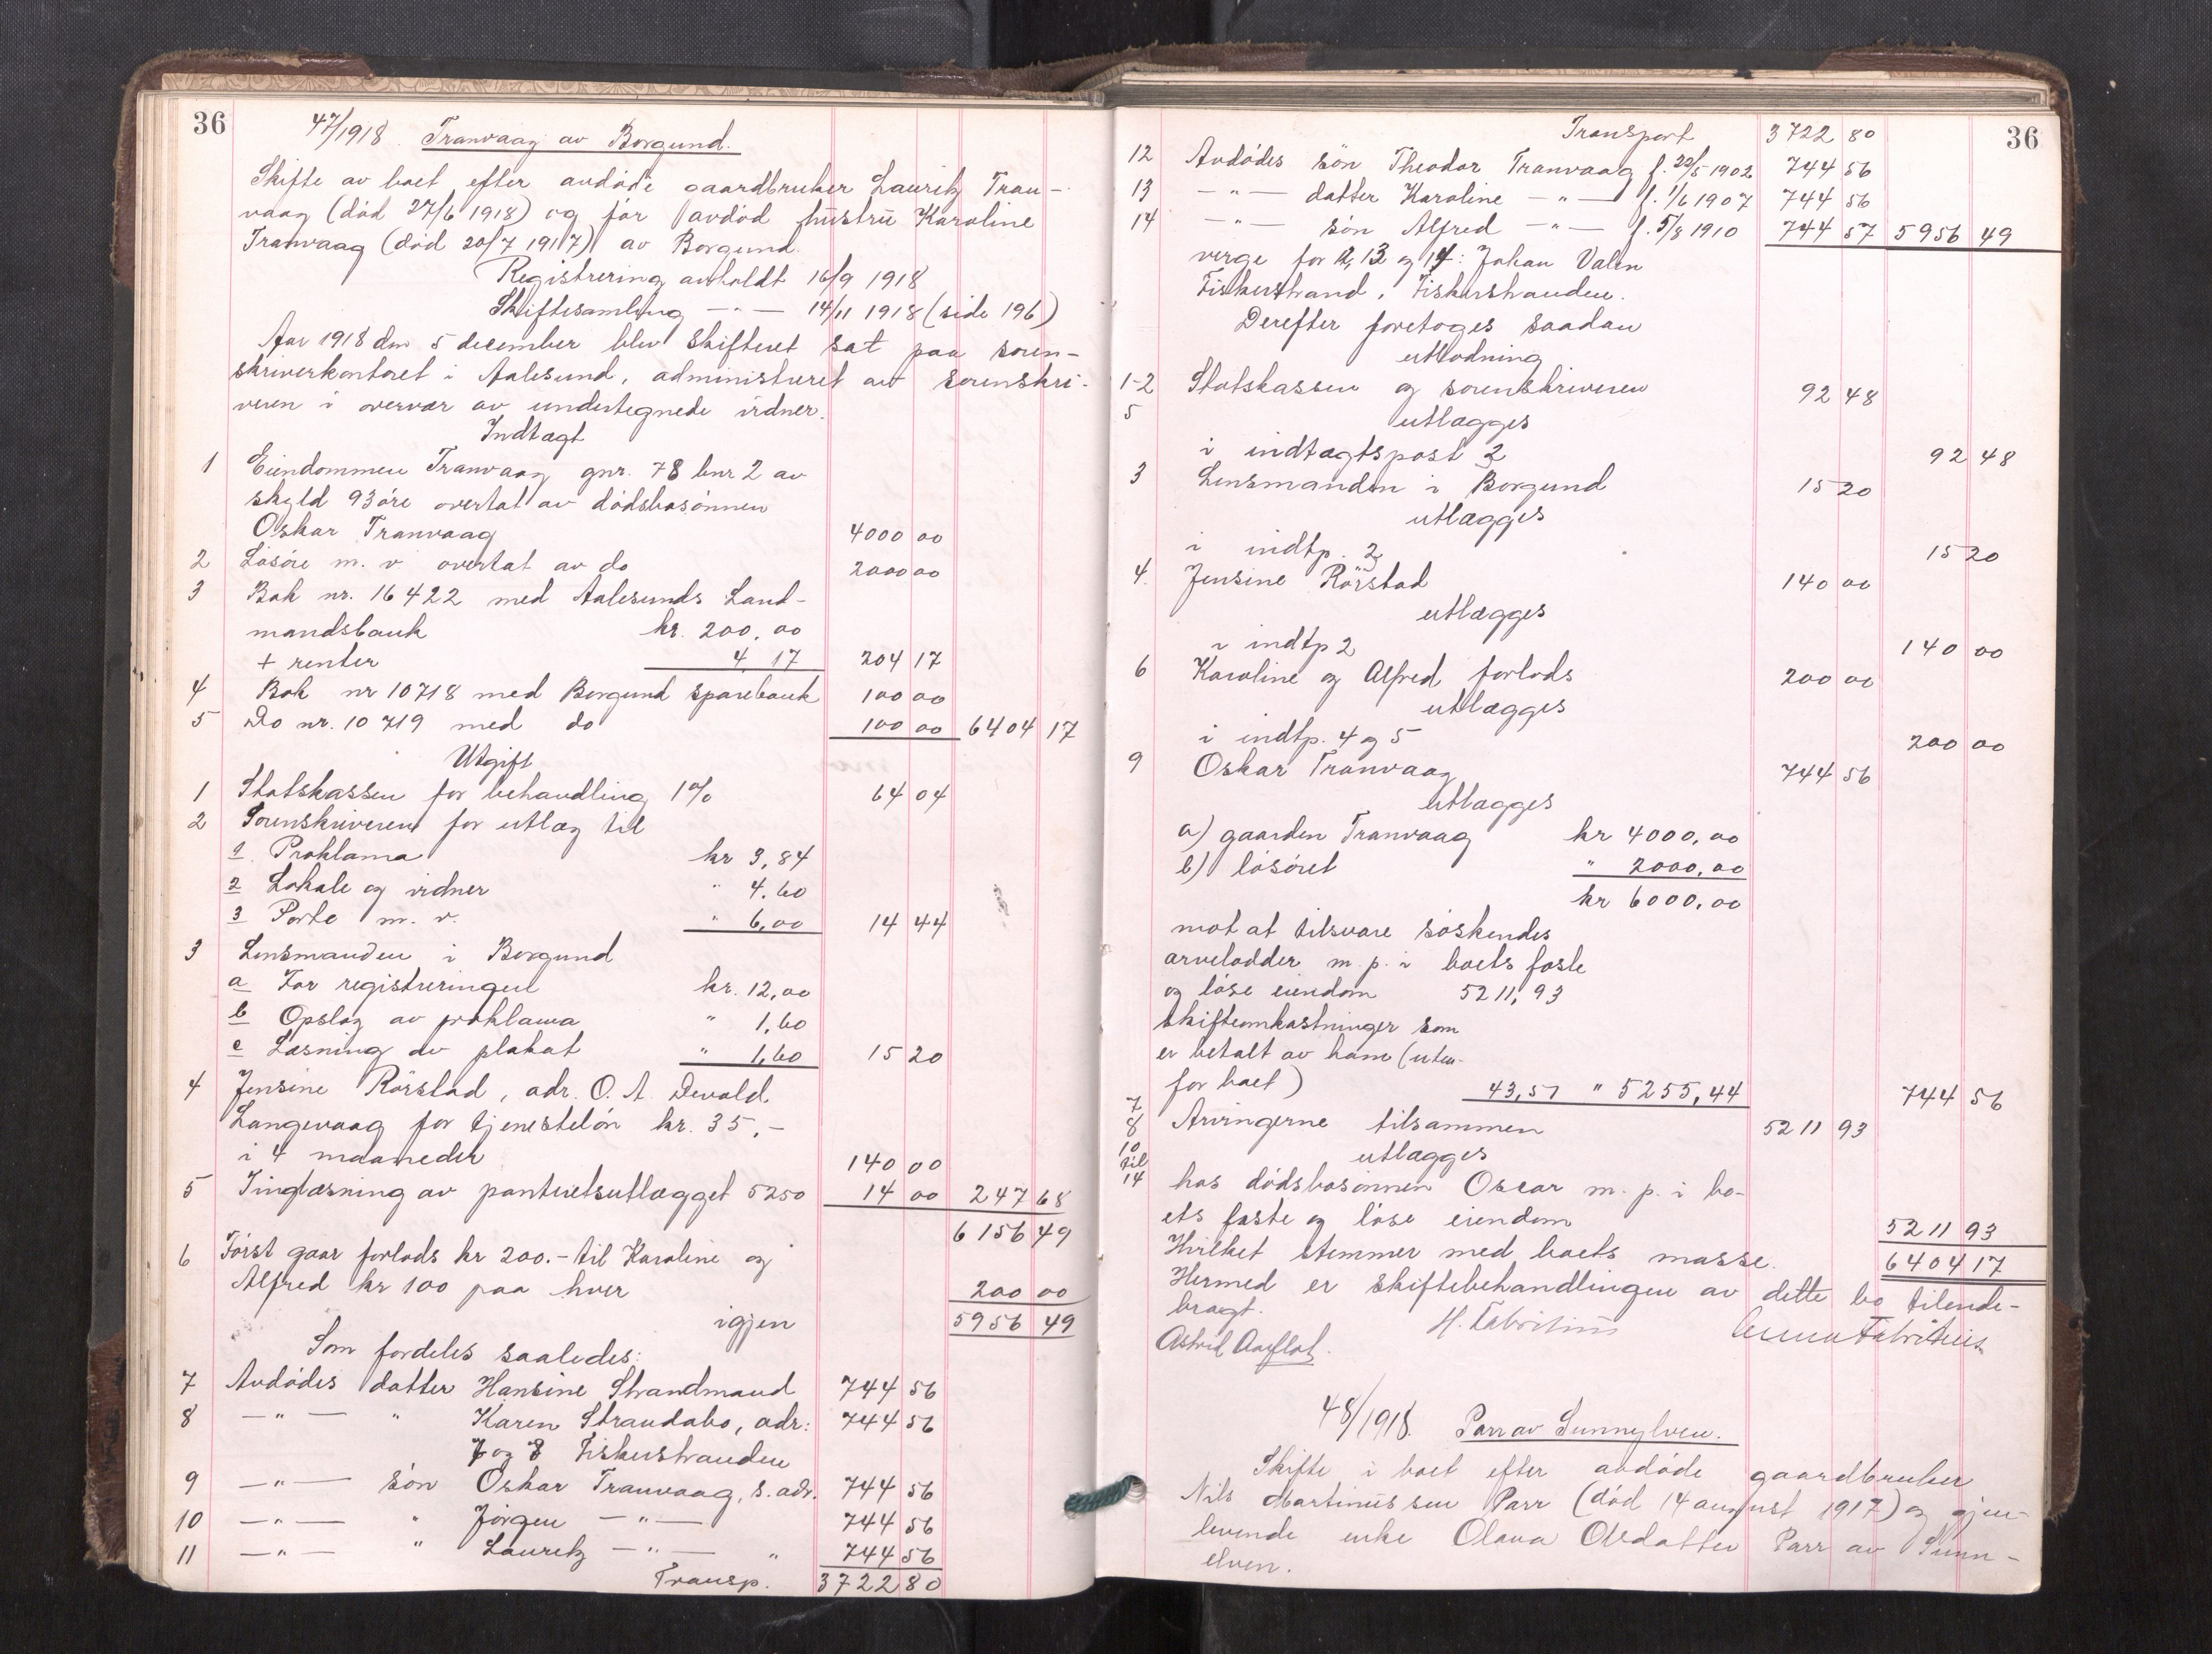 36
47/1918. Tranvaag av Borgund.
Skifte av boet efter avdøde gaardbruker Lauritz Tran-
vaag (død 27/6 1918) og før avdød hustru Karoline
Tranvaag (død 20/7 1917) av Borgund.
Registrering avholdt 16/9 1918
Skiftesamling — " — 14/11 1918 (side 196)
Aar 1918 den 5 december blev skifteret sat paa soren-
skriverkontoret i Aalesund, administreret av sorenskri-
veren i overvær av undertegnede vidner.
Indtægt
1 Eiendommen Tranvaag gnr. 78 bnr 2 av
skyld 93 øre overtat av dødsbosønnen
Oskar Tranvaag 4000 00
2 Løsøre m. v overtat av do 2000 00
3 Bok nr. 16422 med Aalesunds Land-
mandsbank kr. 200,00
+ renter 4 17 204 17
4 Bok nr 10718 med Borgund sparebank 100 00
5 Do nr. 10719 med do 100 00 6404 17
Utgift
1 Statskassen for behandling 1% 64 04
2 Sorenskriveren for utlæg til
1. Proklama kr 3,84
2 Lokale og vidner " 4.60
3 Porto m. v. " 6,00 14 44
3 Lensmanden i Borgund
a For registreringen kr. 12,00
b Opslag av proklama " 1,60
c Læsning av plakat " 1,60 15 20
4 Jensine Rørstad, adr. O. A. Devold,
Langevaag for tjenesteløn kr. 35,-
i 4 maaneder 140 00
5 Tinglæsning av panteretsutlægget 5250 14 00 247 68
6156 49
6 Først gaar forlods kr 200.- til Karoline og
Alfred kr 100 paa hver 200 00
igjen 5956 49
Som fordeles saaledes:
7 Avdødes datter Hansine Strandmand 744 56
8 — " — " Karen Strandabo, adr: 744 56
7 og 8 Fiskerstranden
9 — " — søn Oskar Tranvaag, s. adr. 744 56
10 — " — " Jørgen — " — 744 56
11 — " — " Lauritz — " — " 744 56
Transp. 3722 80
36
Transport 3722 80
12 Avdødes søn Theodor Tranvaag f. 22/5 1902 744 56
13 — " — datter Karoline — " — f. 1/6 1907 744 56
14 — " — søn Alfred — " — f. 5/8 1910 744 57 5956 49
verge for 12, 13 og 14: Johan Valen
Fiskerstrand, Fiskerstranden.
Derefter foretoges saadan
utlodning
1-2 Statskassen og sorenskriveren 92 48
5 utlægges
i indtægtspost 2 92 48
3 Lensmanden i Borgund 15 20
utlægges
i indtp. 2 15 20
4. Jensine Rørstad 140 00
utlægges
i indtp 2 140 00
6 Karoline og Alfred forlods 200 00
utlægges
i indtp. 4 og 5 200 00
9 Oskar Tranvaag 744 56
utlægges
a) gaarden Tranvaag kr 4000,00
b) løsøret " 2000,00
kr 6000,00
mot at tilsvare søskendes
arvelodder m. p. i boets faste
og løse eiendom 5211,93
skifteomkastninger som
er betalt av ham (uten-
for boet) 43,51 " 5255,44 744 56
7
8 Arvingerne tilsammen 5211 93
10
til utlægges
14 hos dødsbosønnen Oscar m. p. i bo-
ets faste og løse eiendom 5211 93
Hvilket stemmer med boets masse. 6404 17
Hermed er skiftebehandlingen av dette bo tilende-
bragt.
H. Fabritius
Astrid Aarflot.
Fabritius
48/1918. Parr av Sunnylven.
Skifte i boet efter avdøde gaardbruker
Nils Martinussen Parr (død 14 august 1917) og gjen-
levende enke Olava Olsdatter Parr av Sunn-
elven.